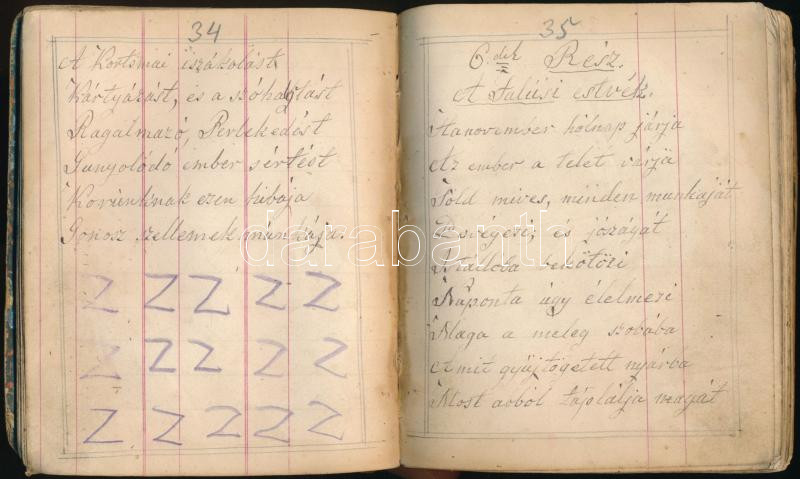 34
A Kortsmai iszákolást
Kártyázást, és a szóhajlást
Ragalmazó, Perlekedést
Gunyolódó ember sértést
Korünknak ezen hibája
Gonosz szellemek munkája.
Z Z Z Z Z
Z Z Z Z Z
Z Z Z Z Z
35
6.dik Rész.
A Falúsi estvék.
Ha november hólnap járja
Az ember a telet várja
Föld mives, minden munkáját
Bévégezi; és jószágát
Istállóba bekötözi
Náponta úgy élelmezi
Maga a meleg szobába
A mit gyüjtögetett nyárba
Most abból táplálja magát
darabanth